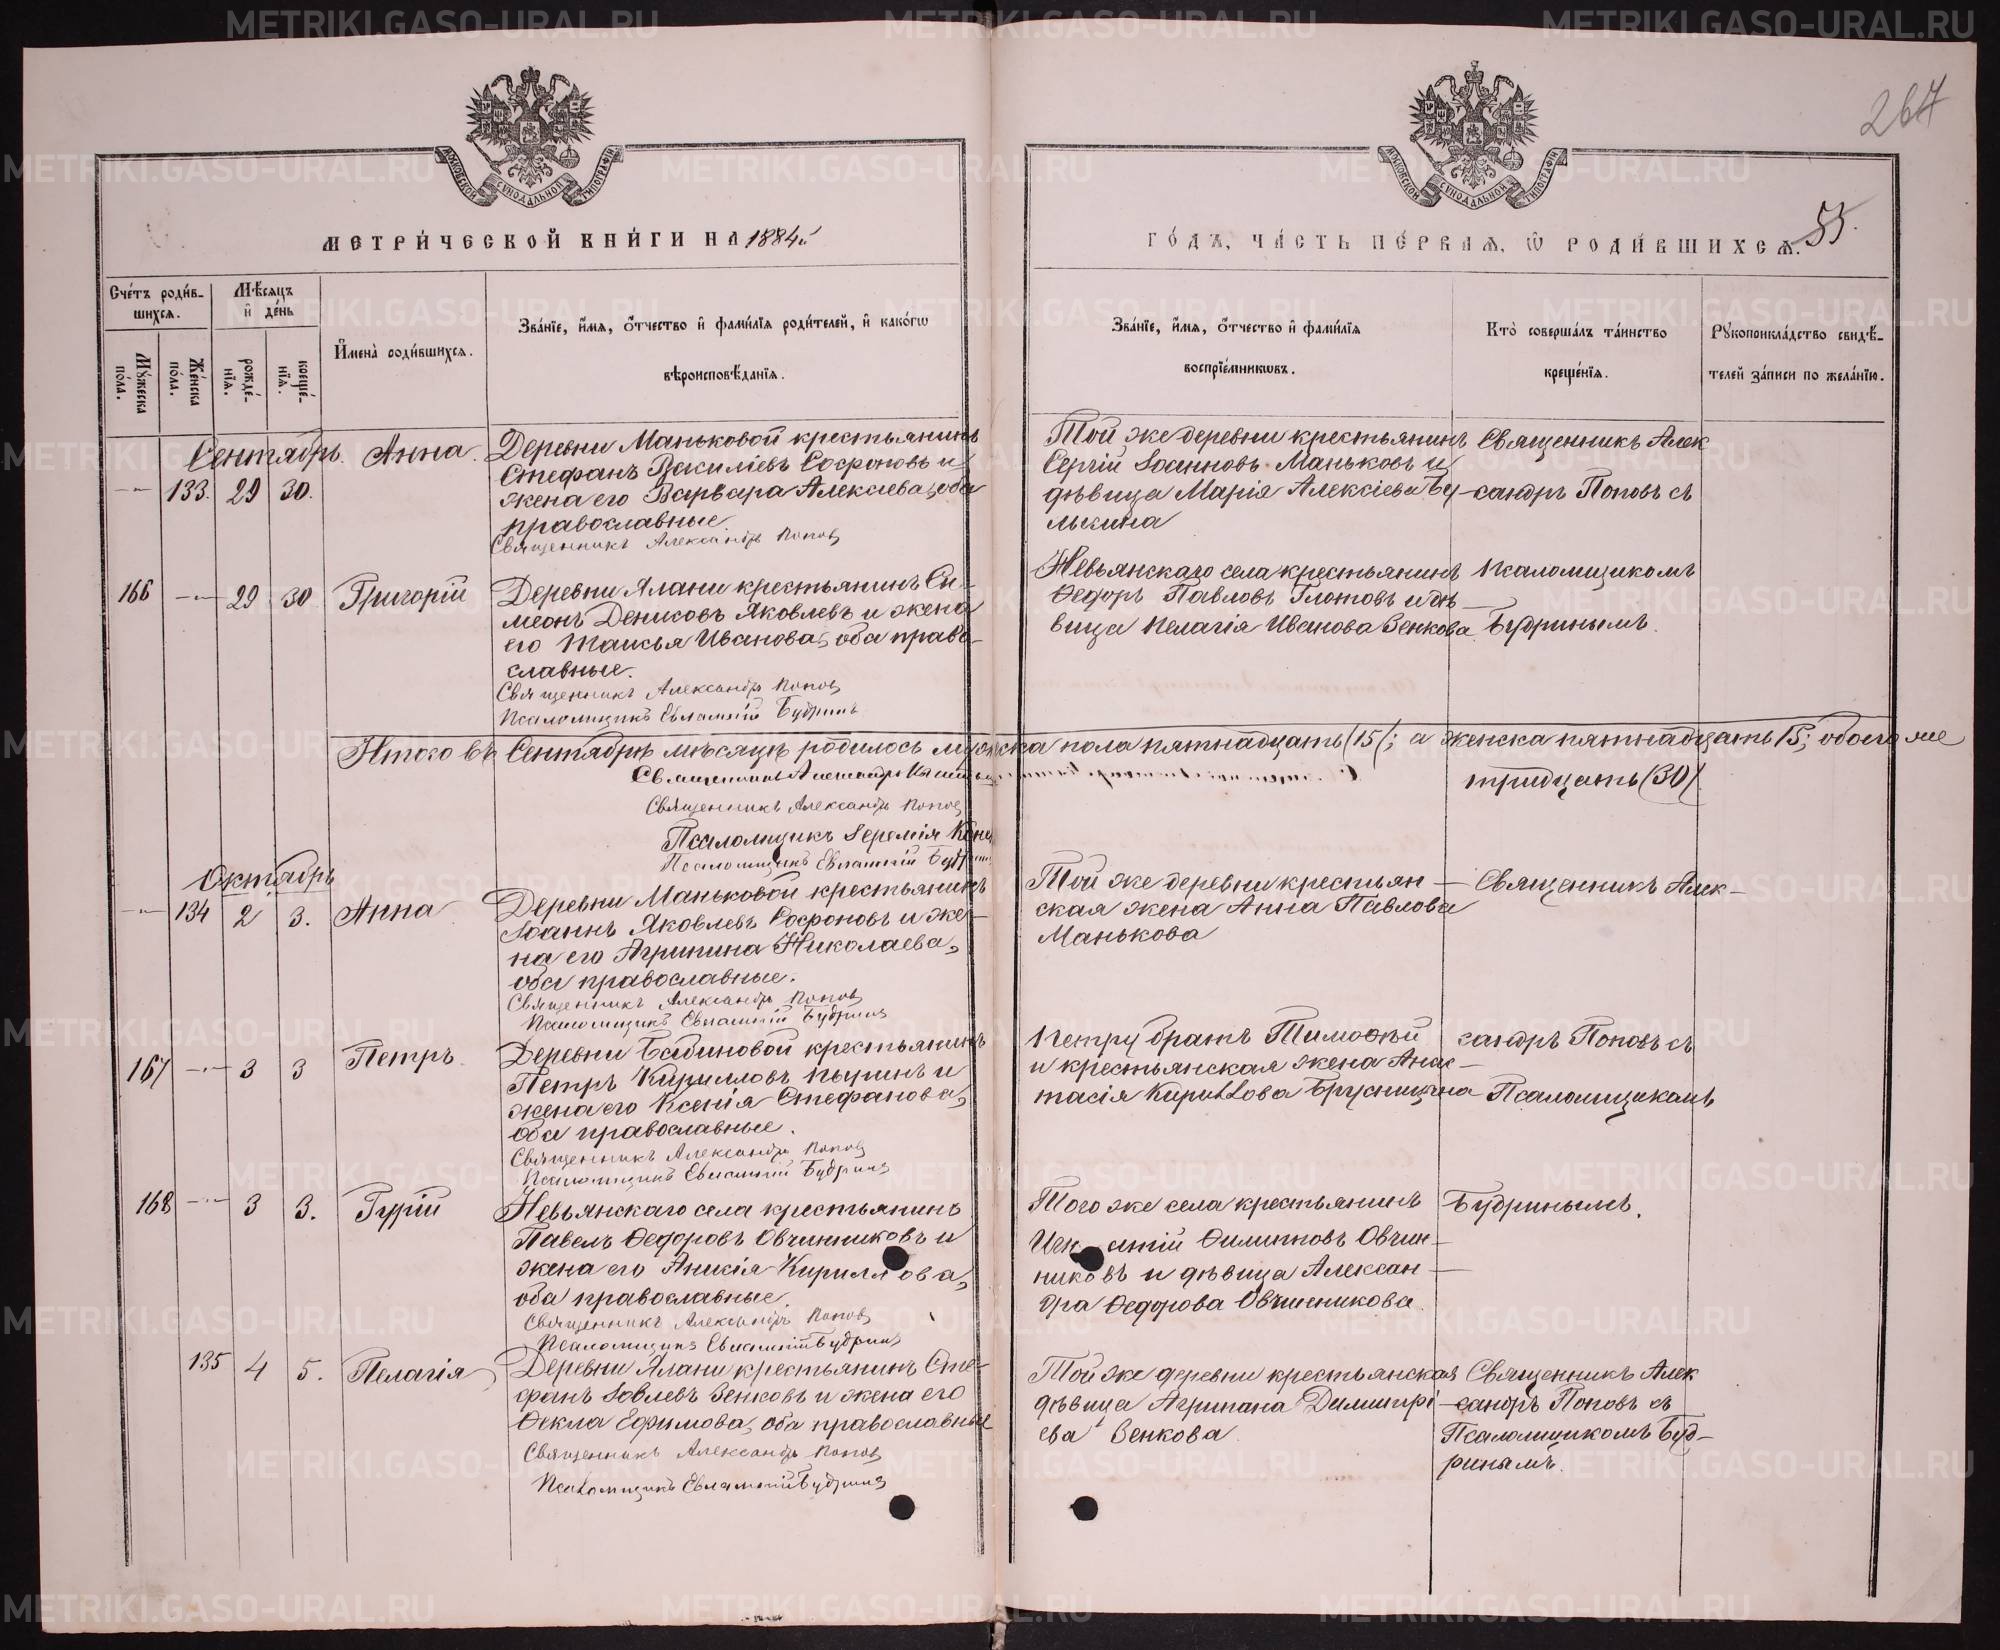 267
МОСКОВСКОЙ СѴНОДАЛЬНОЙ ТИПОГРАФІИ
МОСКОВСКОЙ СѴНОДАЛЬНОЙ ТИПОГРАФІИ
МЕТРИ́ЧЕСКОЙ КНИ́ГИ НА 1884й
ГО́ДЪ, ЧА́СТЬ ПЕ́РВАЯ, Ѡ РОДИ́ВШИХСЯ.
55.
Сче́тъ роди́в-
шихся.
Мѣсяцъ
и де́нь
Му́жеска по́ла.
Же́нска по́ла.
рожде́-
нїя.
креще́-
нїя.
Имена̀ роди́вшихся.
Зва́нїе, и́мя, о́тчество и фами́лїя роди́телей, и како́гѡ
вѣроисповѣ́данїя.
Зва́нїе, и́мя, о́тчество и фами́лїя
воспрїе́мникѡвъ.
Кто̀ соверша́лъ та́инство
креще́нїя.
Рꙋкоприкла́дство свидѣ́-
телей за́писи по жела́нїю.
Сентябрь.
133. 29 30.
Анна.
Деревни Маньковой крестьянинъ
Стефанъ Василіевъ Софроновъ и
жена его Варвара Алексіева, оба
православные.
Священникъ Александръ Поповъ
Той же деревни крестьянинъ
Сергій Іоанновъ Маньковъ и
дѣвица Марія Алексіева Бу-
лькина
Священникъ Алек
сандръ Поповъ съ
166 29 30
Григорій
Деревни Ялани крестьянинъ Си-
меонъ Денисовъ Яковлевъ и жена
его Таисья Иванова, оба право-
славные.
Священникъ Александръ Поповъ
Псаломщикъ Евлампій Будринъ
Невьянскаго села крестьянинъ
Ѳедоръ Павловъ Глотовъ и дѣ-
вица Пелагія Иванова Зенкова
псаломщикомъ
Будринымъ.
Итого въ Сентябрѣ мѣсяцѣ родилось мужеска пола пятнадцать (15); а женска пятнадцать 15; обоего же
тридцать (30)
Священникъ Александръ
Священникъ Александръ Поповъ
Псаломщикъ Іеремія
Псаломщикъ Евлампій Будринъ
Октябрь
134 2 3.
Анна
Деревни Маньковой крестьянинъ
Іоаннъ Яковлевъ Софроновъ и же-
на его Агрипина Николаева,
оба православные.
Священникъ Александръ Поповъ
Псаломщикъ Евлампій Будринъ
Той же деревни крестьян-
ская жена Анна Павлова
Манькова
Священникъ Алек-
167 3 3
Петръ.
Деревни Бабиновой крестьянинъ
Петръ Кирилловъ Пыринъ и
жена его Ксенія Стефанова,
оба православные.
Священникъ Александръ Поповъ
Псаломщикъ Евлампій Будринъ
Петру братъ Тимоѳей
и крестьянская жена Анас-
тасія Кириллова Брусницына
сандръ Поповъ съ
Псаломщикомъ
168 3 3.
Гурій
Невьянскаго села крестьянинъ
Павелъ Ѳедоровъ Овчинниковъ и
жена его Аникія Кириллова,
оба православные.
Священникъ Александръ Поповъ
Псаломщикъ Евлампій Будринъ
Того же села крестьянинъ
Филипповъ Овчин-
никовъ и дѣвица Алексан-
дра Ѳедорова Овчинникова
Будринымъ.
135 4 5.
Пелагія
Деревни Ялани крестьянинъ Сте-
фанъ Іовлевъ Зенковъ и жена его
Ѳекла Ефимова, оба православные
Священникъ Александръ Поповъ
Псаломщикъ Евлампій Будринъ
Той же деревни крестьянская
дѣвица Агрипана Димитрі-
ева Зенкова
Священникъ Алек
сандръ Поповъ съ
Псаломщикомъ Буд-
ринымъ.
METRIKI.GASO-URAL.RU